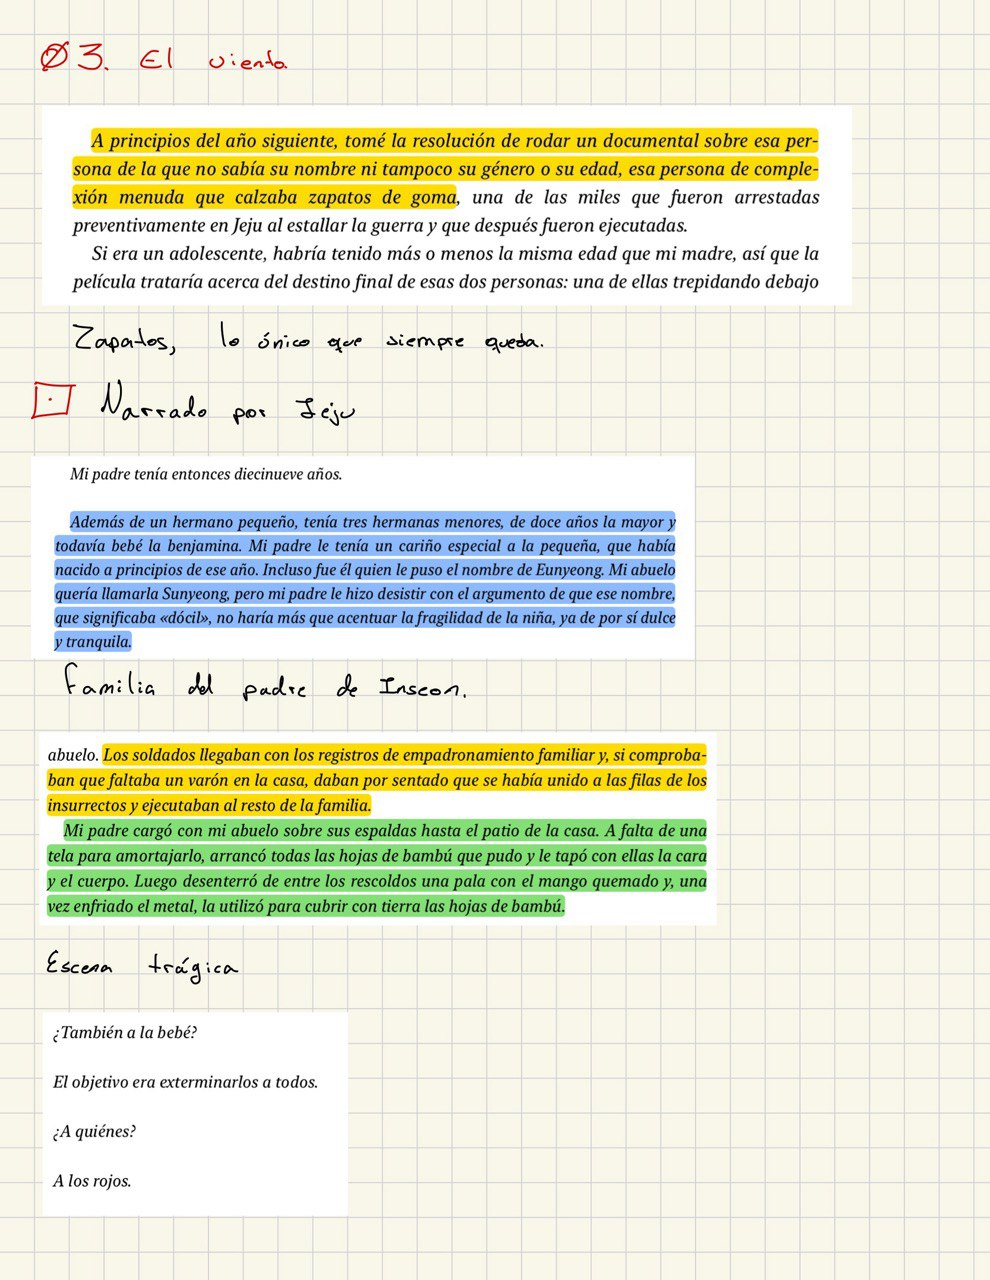 03. El viento
A principios del año siguiente, tomé la resolución de rodar un documental sobre esa per-
sona de la que no sabía su nombre ni tampoco su género o su edad, esa persona de comple-
xión menuda que calzaba zapatos de goma, una de las miles que fueron arrestadas
preventivamente en Jeju al estallar la guerra y que después fueron ejecutadas.
Si era un adolescente, habría tenido más o menos la misma edad que mi madre, así que la
película trataría acerca del destino final de esas dos personas: una de ellas trepidando debajo
Zapatos, lo único que siempre queda.
Narrado por Jeju
Mi padre tenía entonces diecinueve años.
Además de un hermano pequeño, tenía tres hermanas menores, de doce años la mayor y
todavía bebé la benjamina. Mi padre le tenía un cariño especial a la pequeña, que había
nacido a principios de ese año. Incluso fue él quien le puso el nombre de Eunyeong. Mi abuelo
quería llamarla Sunyeong, pero mi padre le hizo desistir con el argumento de que ese nombre,
que significaba «dócil», no haría más que acentuar la fragilidad de la niña, ya de por sí dulce
y tranquila.
Familia del padre de Inseon.
abuelo. Los soldados llegaban con los registros de empadronamiento familiar y, si comproba-
ban que faltaba un varón en la casa, daban por sentado que se había unido a las filas de los
insurrectos y ejecutaban al resto de la familia.
Mi padre cargó con mi abuelo sobre sus espaldas hasta el patio de la casa. A falta de una
tela para amortajarlo, arrancó todas las hojas de bambú que pudo y le tapó con ellas la cara
y el cuerpo. Luego desenterró de entre los rescoldos una pala con el mango quemado y, una
vez enfriado el metal, la utilizó para cubrir con tierra las hojas de bambú.
Escena trágica
¿También a la bebé?
El objetivo era exterminarlos a todos.
¿A quiénes?
A los rojos.